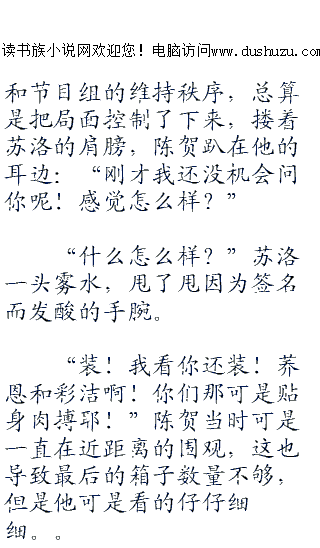 读书族小说网欢迎您！电脑访问www.dushuzu.com
和节目组的维持秩序，总算
是把局面控制了下来，搂着
苏洛的肩膀，陈贺趴在他的
耳边：“刚才我还没机会问
你呢！感觉怎么样？”
“什么怎么样？”苏洛
一头雾水，甩了甩因为签名
而发酸的手腕。
“装！我看你还装！荞
恩和彩洁啊！你们那可是贴
身肉搏耶！”陈贺当时可是
一直在近距离的围观，这也
导致最后的箱子数量不够，
但是他可是看的仔仔细
细。。